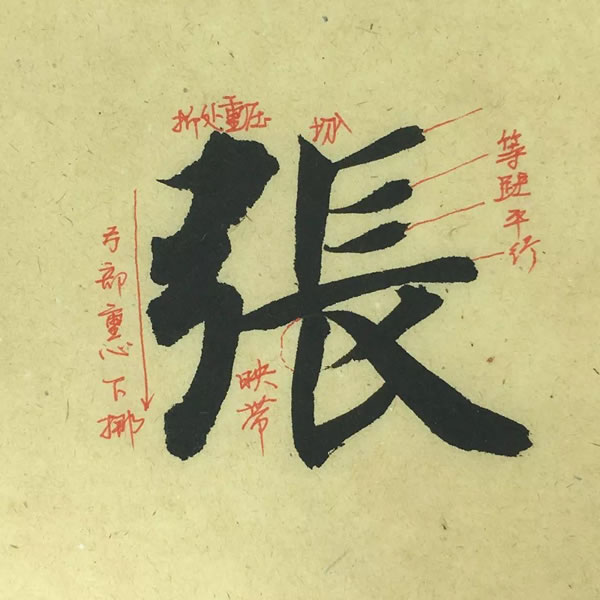 折处重压
張
等距平行
弓部重心下挪
映带